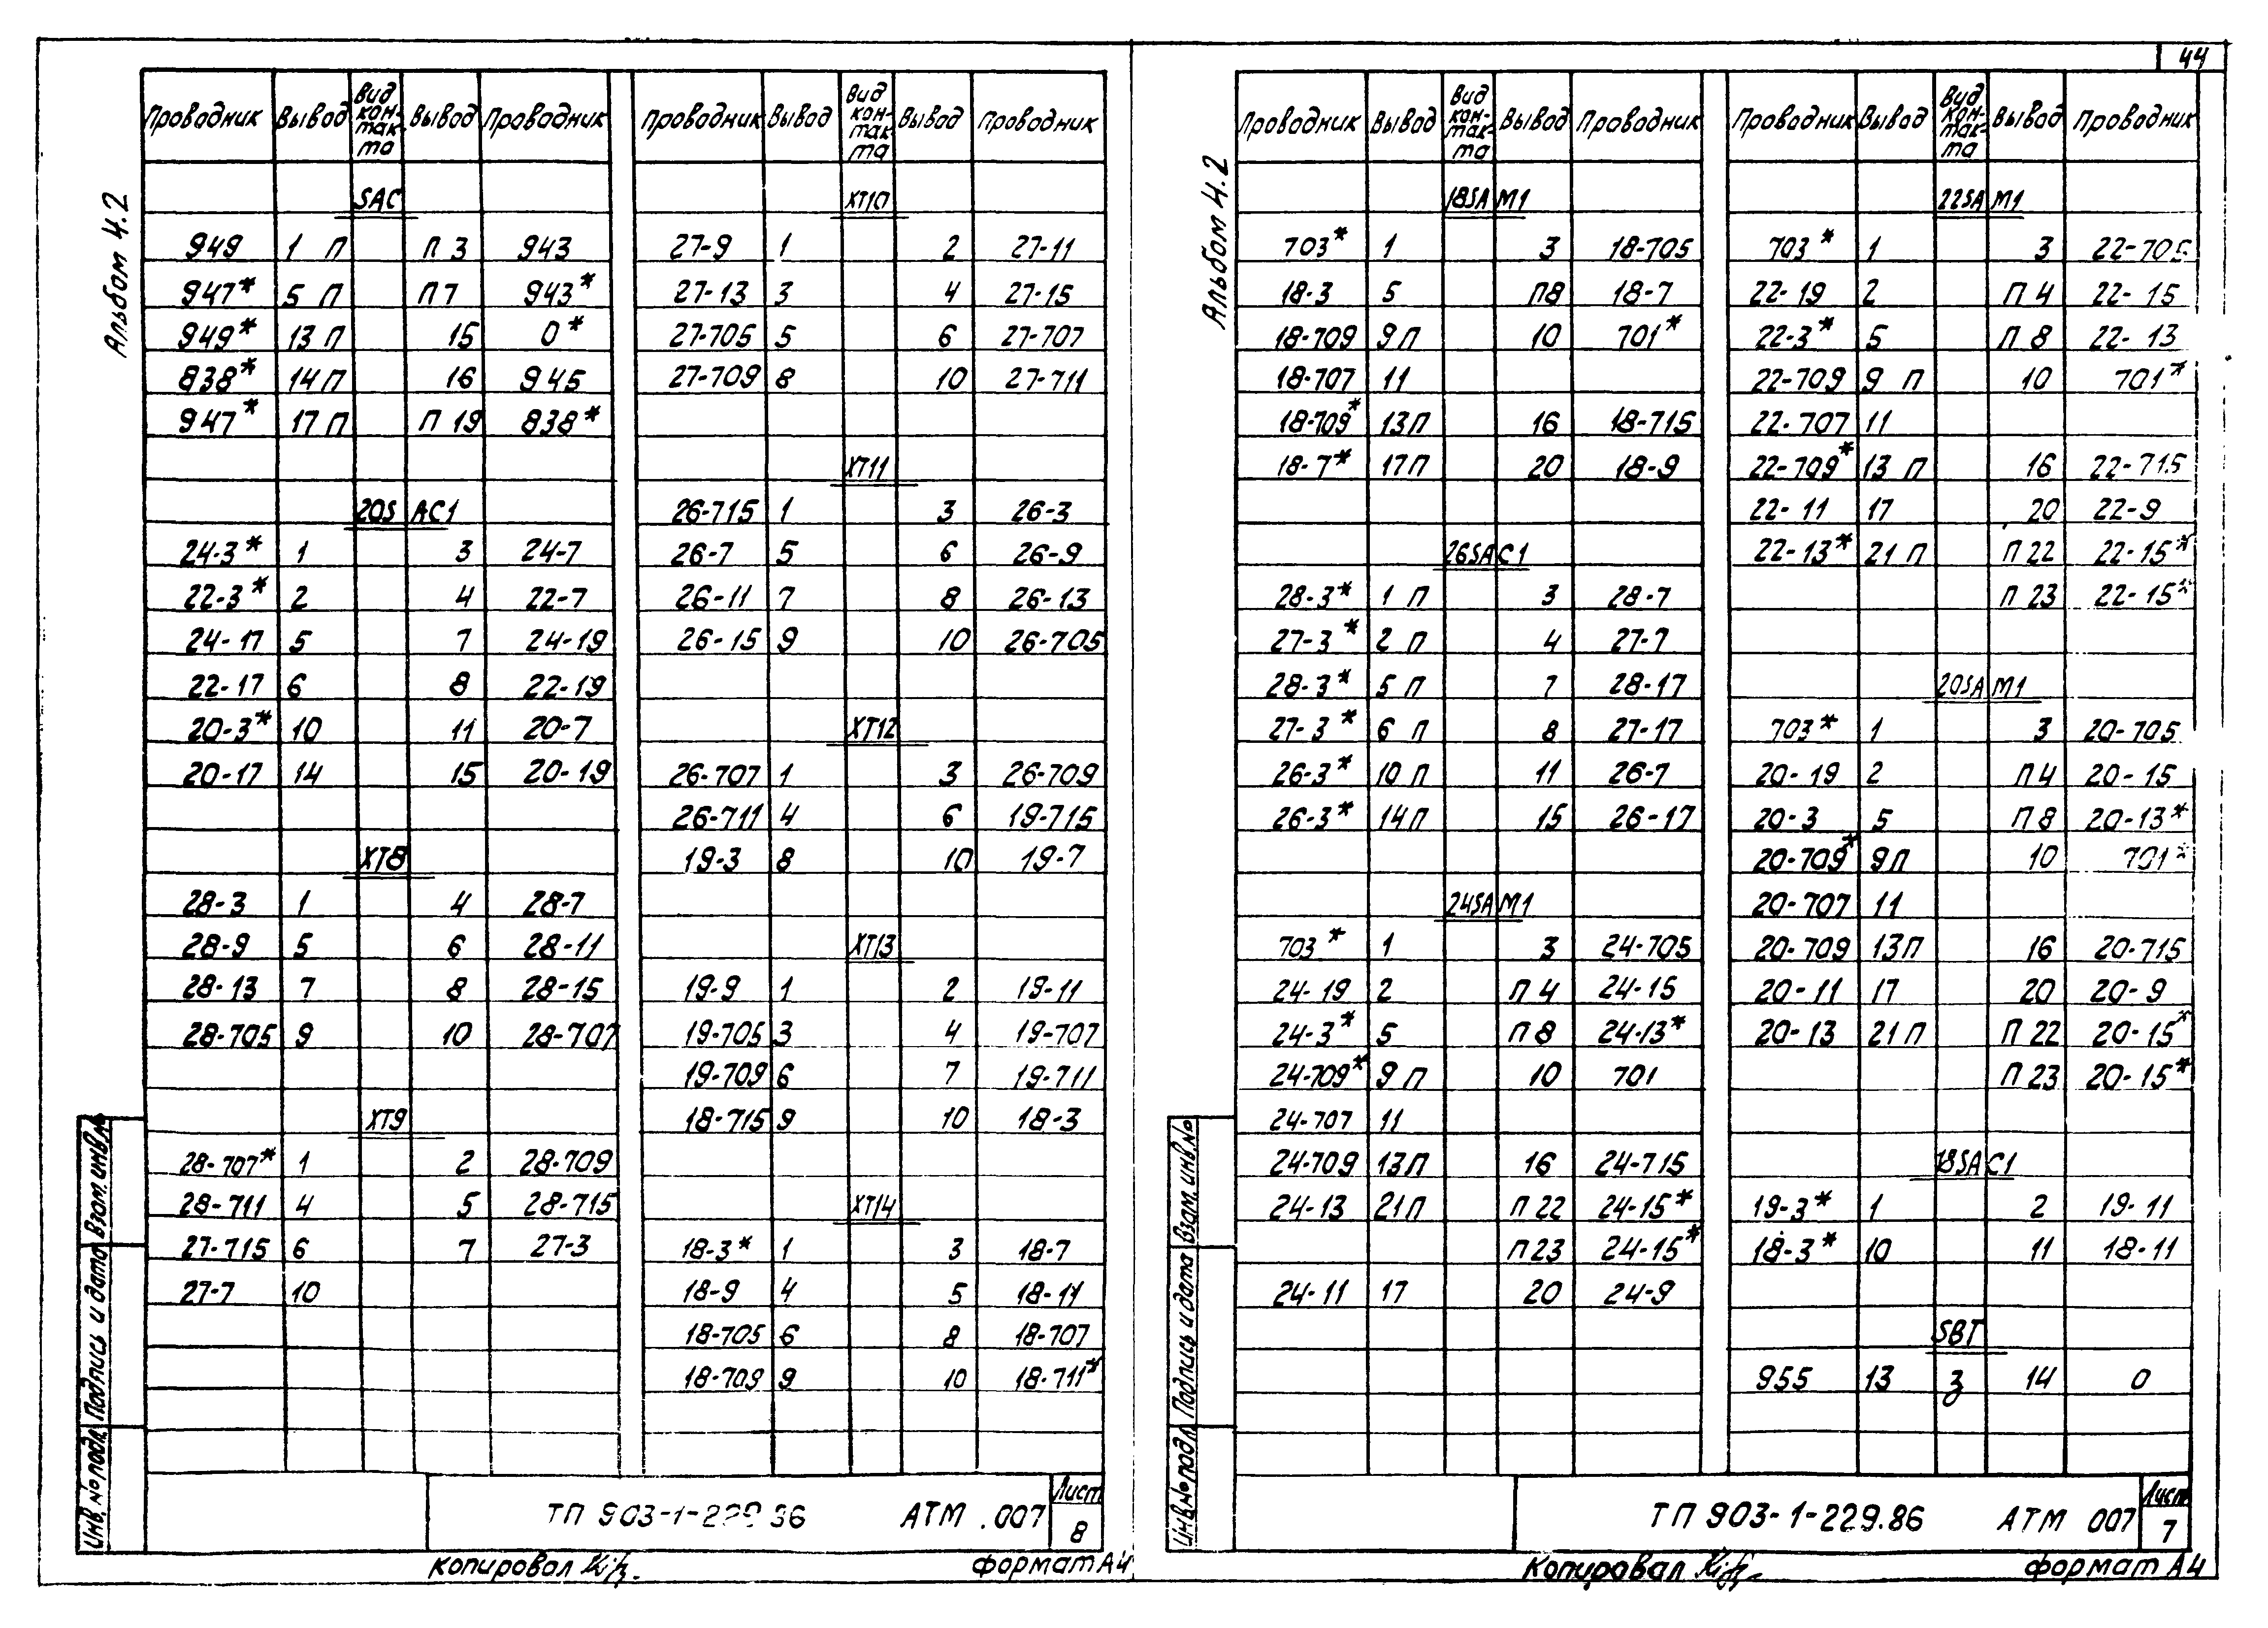 44
Альбом 4.2
Проводник Вывод Вид кон-так-та Вывод Проводник
SAC
949 1 П П 3 943
947* 5 П П 7 943*
949* 13 П 15 0*
838* 14 П 16 945
947* 17 П П 19 838*
20SAC1
24-3* 1 3 24-7
22-3* 2 4 22-7
24-17 5 7 24-19
22-17 6 8 22-19
20-3* 10 11 20-7
20-17 14 15 20-19
XT8
28-3 1 4 28-7
28-9 5 6 28-11
28-13 7 8 28-15
28-705 9 10 28-707
XT9
28-707* 1 2 28-709
28-711 4 5 28-715
27-715 6 7 27-3
27-7 10
Проводник Вывод Вид кон-так-та Вывод Проводник
XT10
27-9 1 2 27-11
27-13 3 4 27-15
27-705 5 6 27-707
27-709 8 10 27-711
XT11
26-715 1 3 26-3
26-7 5 6 26-9
26-11 7 8 26-13
26-15 9 10 26-705
XT12
26-707 1 3 26-709
26-711 4 6 19-715
19-3 8 10 19-7
XT13
19-9 1 2 19-11
19-705 3 4 19-707
19-709 6 7 19-711
18-715 9 10 18-3
XT14
18-3* 1 3 18-7
18-9 4 5 18-11
18-705 6 8 18-707
18-709 9 10 18-711*
Инв.№ подл. Подпись и дата Взам. инв.№
ТП 903-1-229.86 АТМ .007 Лист 8
Копировал
формат А4
Альбом 4.2
Проводник Вывод Вид кон-так-та Вывод Проводник
18SAM1
703* 1 3 18-705
18-3 5 П8 18-7
18-709 9 П 10 701*
18-707 11
18-709* 13 П 16 18-715
18-7* 17 П 20 18-9
26SAC1
28-3* 1 П 3 28-7
27-3* 2 П 4 27-7
28-3* 5 П 7 28-17
27-3* 6 П 8 27-17
26-3* 10 П 11 26-7
26-3* 14 П 15 26-17
24SAM1
703* 1 3 24-705
24-19 2 П 4 24-15
24-3* 5 П 8 24-13*
24-709* 9 П 10 701
24-707 11
24-709 13 П 16 24-715
24-13 21 П П 22 24-15*
П 23 24-15*
24-11 17 20 24-9
Проводник Вывод Вид кон-так-та Вывод Проводник
22SAM1
703* 1 3 22-705
22-19 2 П 4 22-15
22-3* 5 П 8 22-13
22-709 9 П 10 701*
22-707 11
22-709* 13 П 16 22-715
22-11 17 20 22-9
22-13* 21 П П 22 22-15*
П 23 22-15*
20SAM1
703* 1 3 20-705
20-19 2 П 4 20-15
20-3 5 П 8 20-13*
20-709* 9 П 10 701*
20-707 11
20-709 13 П 16 20-715
20-11 17 20 20-9
20-13 21 П П 22 20-15*
П 23 20-15*
18SAC1
19-3* 1 2 19-11
18-3* 10 11 18-11
SBT
955 13 З 14 0
Инв.№ подл. Подпись и дата Взам. инв.№
ТП 903-1-229.86 АТМ 007 Лист 7
Копировал
формат А4